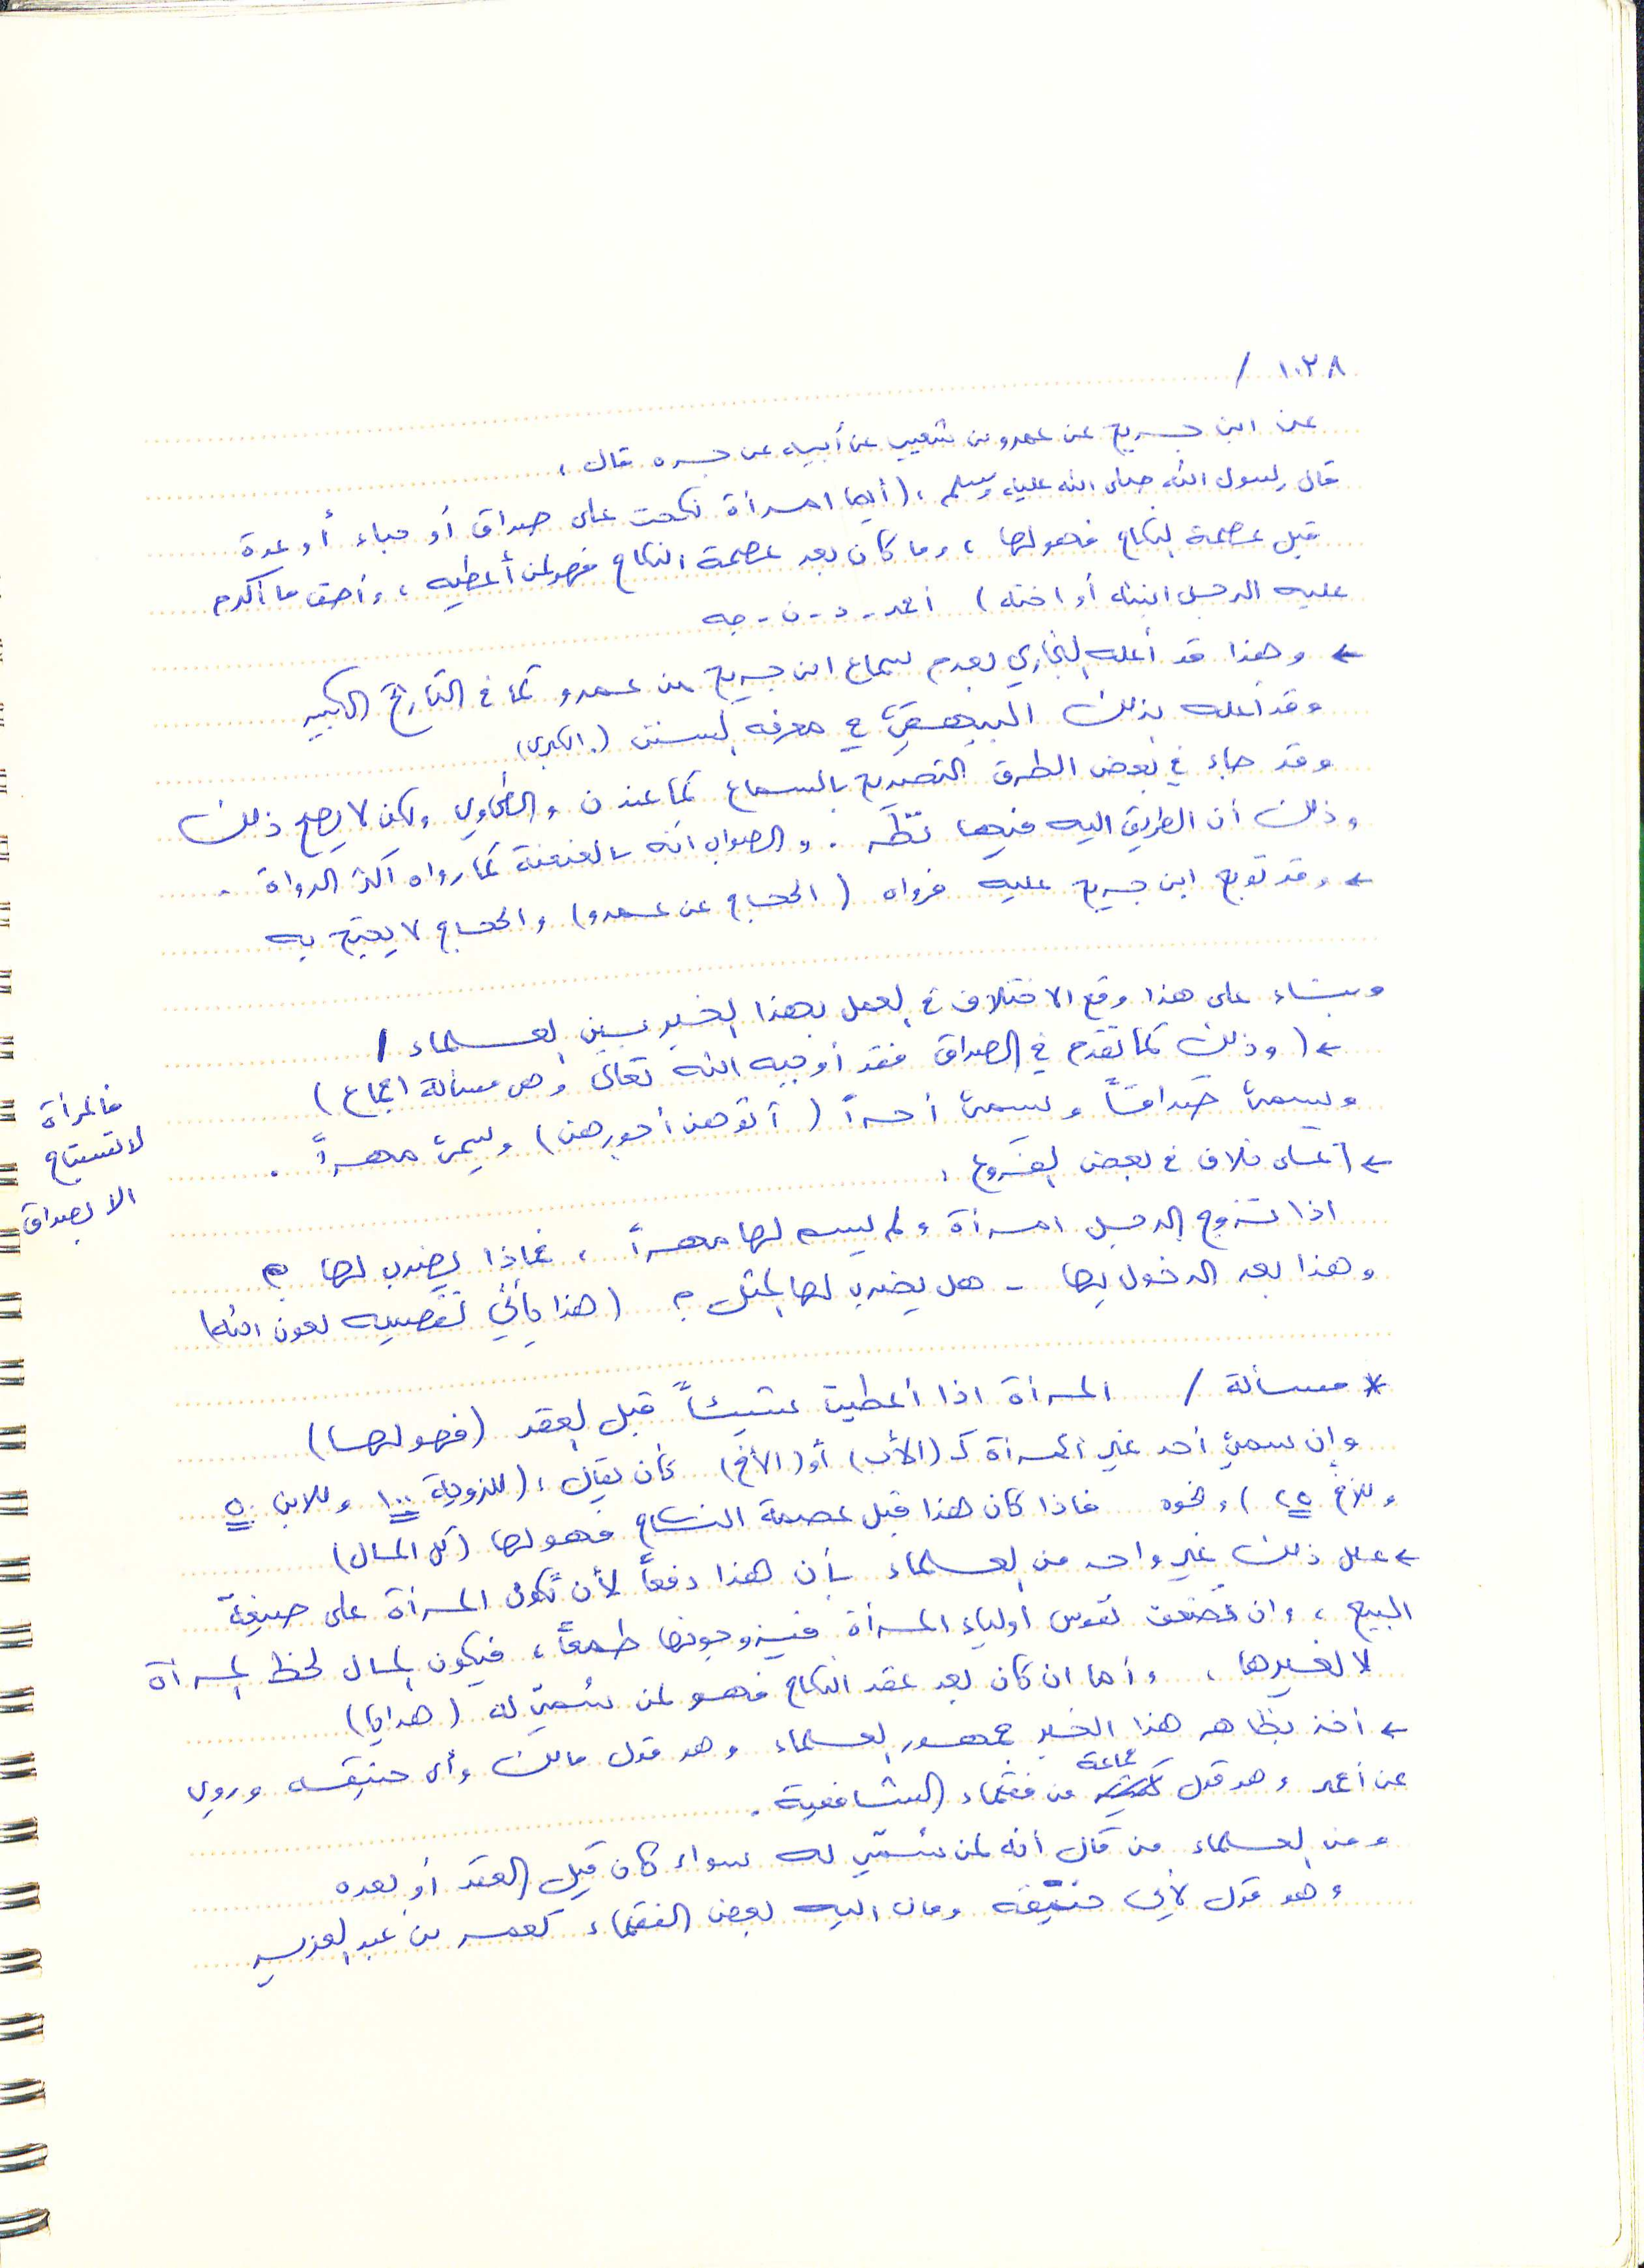 ١٠٢٨ /
عن ابن جريج عن عمرو بن شعيب عن أبيه عن جده قال :
قال رسول الله صلى الله عليه وسلم : (أيما امرأة نكحت على صداق أو حباء أو عدة
قبل عصمة النكاح فهو لها ، وما كان بعد عصمة النكاح فهو لمن أعطيه ، وأحق ما أكرم
عليه الرجل ابنته أو اخته ) احمد - د - ن - جه
← وهذا قد أعله البخاري بعدم سماع ابن جريج من عمرو كما في التاريخ الكبير
وقد أعله بذلك البيهقي في معرفة السنن (الكبرى)
وقد جاء في بعض الطرق التصريح بالسماع كما عند ن والطحاوي ولكن لا يصح ذلك
وذلك أن الطريق اليه فيها نظر . والصواب أنه بالعنعنة كما رواه أكثر الرواة .
← وقد توبع ابن جريج عليه فرواه ( الحجاج عن عمرو) والحجاج لا يحتج به
وبناء على هذا وقع الاختلاف في العمل بهذا الخبر بين العلماء /
← ( وذلك كما تقدم في الصداق فقد أوجبه الله تعالى وهي مسألة اجماع )
ويسمى صداقاً ويسمى أجراً ( آتوهن أجورهن ) ويسمى مهراً .
فالمرأة
لا تستباح
الا بصداق
← على خلاف في بعض الفروع :
اذا تزوج الرجل امرأة ولم يسم لها مهراً ، فماذا يضرب لها ؟
وهذا بعد الدخول بها - هل يضرب لها بالمثل ؟ (هذا يأتي تفصيله بعون الله)
* مسألة / المرأة اذا أعطيت شيئاً قبل العقد (فهو لها)
وإن سمي أحد غير المرأة كـ (الأب) أو (الأخ) كأن يقال : (للزوجة ١٠٠ وللابن ٥٠
وللأخ ٢٥ ) ونحوه فاذا كان هذا قبل عصمة النكاح فهو لها (كل المال)
← علل ذلك غير واحد من العلماء بأن هذا دفعاً لأن تكون المرأة على صيغة
البيع ، وان تضعف نفوس أولياء المرأة فيزوجونها طمعاً ، فيكون المال لحظ المرأة
لا لغيرها ، وأما ان كان بعد عقد النكاح فهو لمن سُمي له (هدايا)
← أخذ بظاهر هذا الخبر جمهور العلماء وهو قول مالك وأبي حنيفة وروي
عن أحمد وهو قول جماعة من فقهاء الشافعية .
ومن العلماء من قال أنه لمن سُمّي له سواء كان قبل العقد أو بعده
وهو قول لأبي حنيفة ومال اليه بعض الفقهاء كعمر بن عبد العزيز